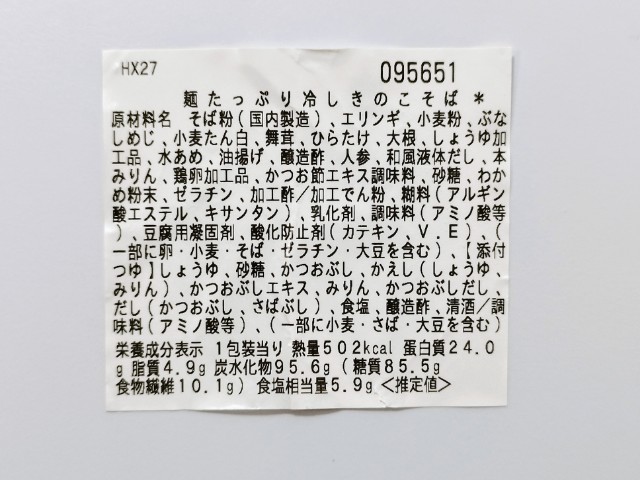 HX27
095651
麺たっぷり冷しきのこそば＊
原材料名 そば粉(国内製造)、エリンギ、小麦粉、ぶな
しめじ、小麦たん白、舞茸、ひらたけ、大根、しょうゆ加
工品、水あめ、油揚げ、醸造酢、人参、和風液体だし、本
みりん、鶏卵加工品、かつお節エキス調味料、砂糖、わか
め粉末、ゼラチン、加工酢／加工でん粉、糊料(アルギン
酸エステル、キサンタン)、乳化剤、調味料(アミノ酸等
)、豆腐用凝固剤、酸化防止剤(カテキン、V.E)、(
一部に卵・小麦・そば・ゼラチン・大豆を含む)、【添付
つゆ】しょうゆ、砂糖、かつおぶし、かえし(しょうゆ、
みりん)、かつおぶしエキス、みりん、かつおぶしだし、
だし(かつおぶし、さばぶし)、食塩、醸造酢、清酒／調
味料(アミノ酸等)、(一部に小麦・さば・大豆を含む)
栄養成分表示 1包装当り 熱量502kcal 蛋白質24.0
g 脂質4.9g 炭水化物95.6g(糖質85.5g
食物繊維10.1g) 食塩相当量5.9g<推定値>